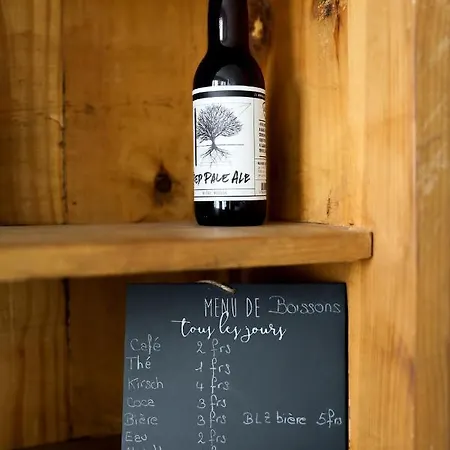 PALE ALE
MENU DE Boissons
tous les jours
Café 2 frs
Thé 1 frs
Kirsch 4 frs
Coca 3 frs
Bière 3 frs BLZ bière 5frs
Eau 2 frs